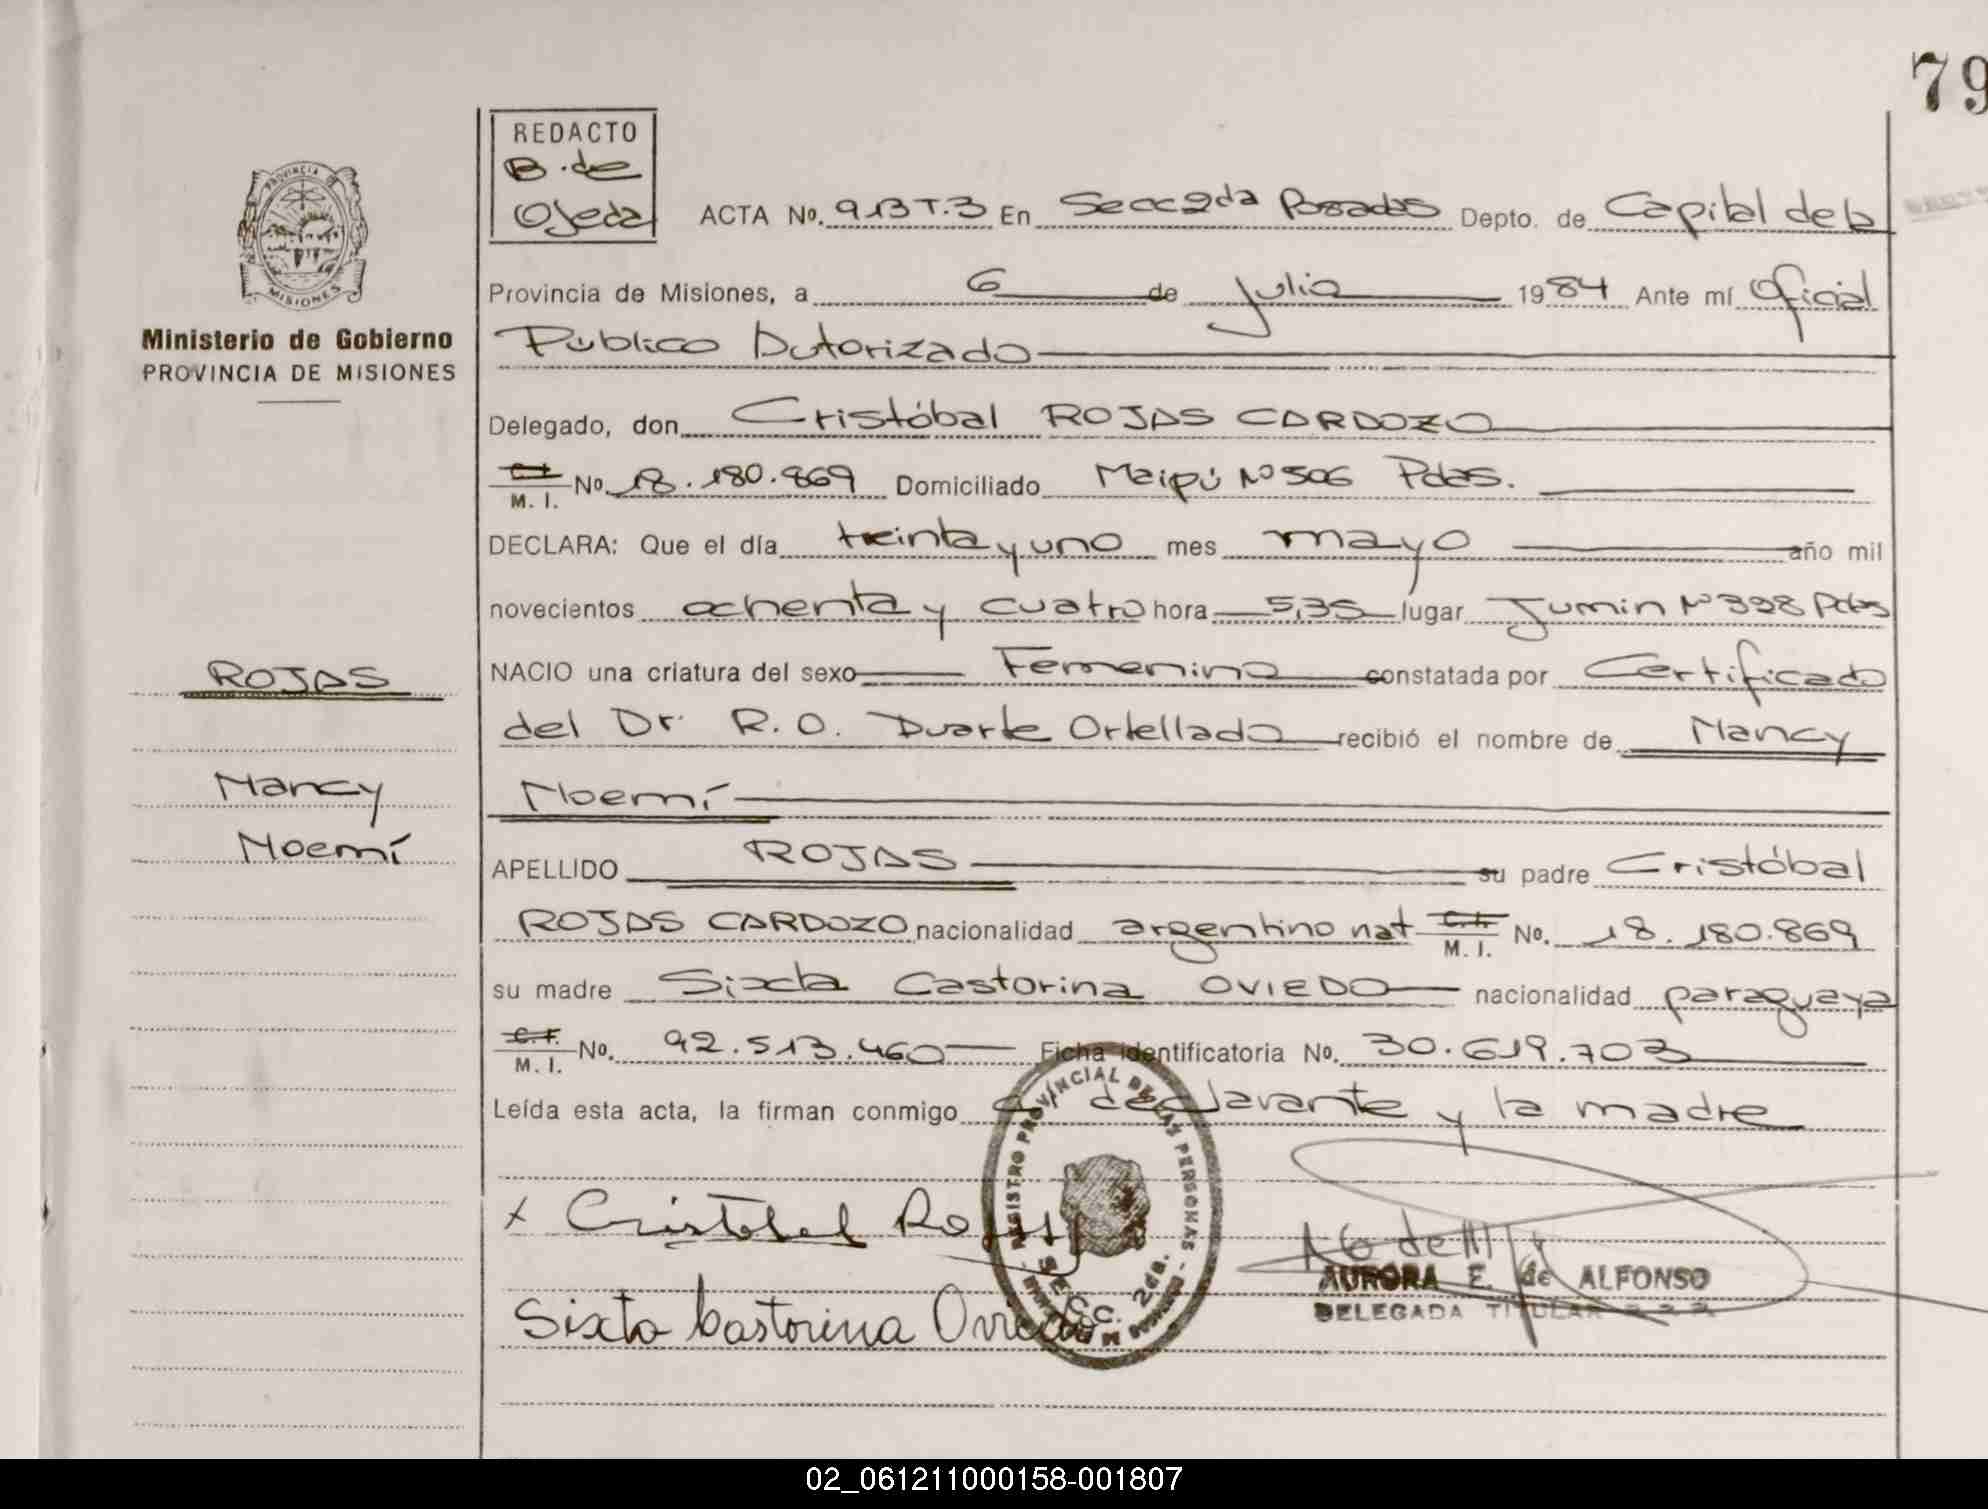 79
REDACTO
B. de
Ojeda
ACTA No. 913 T.3 En Secc 2da Posadas Depto. de Capital de la
PROVINCIA DE
MISIONES
Provincia de Misiones, a 6 de Julio 1984 Ante mí Oficial
Ministerio de Gobierno
PROVINCIA DE MISIONES
Público Autorizado
Delegado, don Cristóbal ROJAS CARDOZO
C.I. M. I. No. 18.180.869 Domiciliado Maipú Nº 506 Pdas.
DECLARA: Que el día treinta y uno mes mayo año mil
novecientos ochenta y cuatro hora 5,35 lugar Junin Nº 398 Pdas
ROJAS
NACIO una criatura del sexo Femenino constatada por Certificado
del Dr. R. O. Duarte Ortellado recibió el nombre de Nancy
Nancy
Noemí
Noemí
APELLIDO ROJAS su padre Cristóbal
ROJAS CARDOZO nacionalidad argentino nat C.I. M. I. No. 18.180.869
su madre Sixta Castorina OVIEDO nacionalidad paraguaya
C.I. M. I. No. 92.513.460 Ficha identificatoria No. 30.619.703
Leída esta acta, la firman conmigo el declarante y la madre
x Cristobal Rojas
Sixta Castorina Oviedo
REGISTRO PROVINCIAL DE LAS PERSONAS
SECC. 2da.
AURORA E. de ALFONSO
DELEGADA TITULAR
02_061211000158-001807